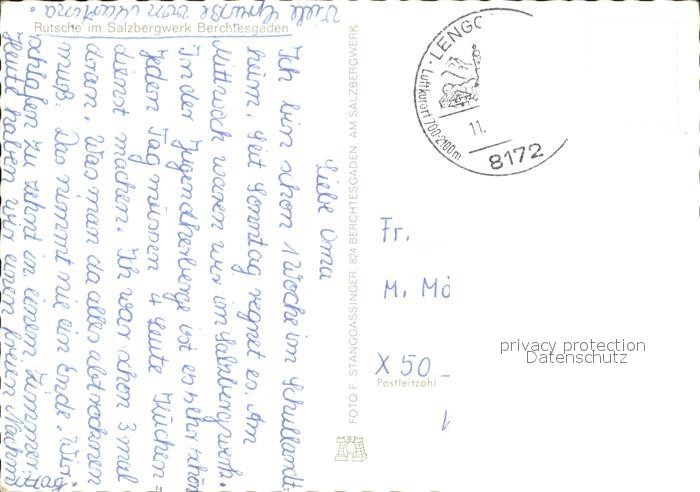 Rutsche im Salzbergwerk Berchtesgaden
Liebe Oma
Ich bin schon 1 Woche im Schullandt=
heim. Seit Sonntag regnet es. Am
Mittwoch waren wir im Salzbergwerk.
In der Jugendherberge ist es sehr schön
Jeden Tag müssen 4 Leute Küchen=
dienst machen. Ich war schon 3 mal
daran. Was man da alles abtrocknen
muß. Das nimmt nie ein Ende. Wir
schlafen zu zehnt in einem Zimmer.
Heut haben wir einen freien Nachmit
Viele Grüße von
FOTO F. STANGGASSINGER, 824 BERCHTESGADEN, AM SALZBERGWERK
LENGG
Luftkurort 700-2100m
11.
8172
Fr.
M. Mö
X 50
Postleitzahl
privacy protection
Datenschutz